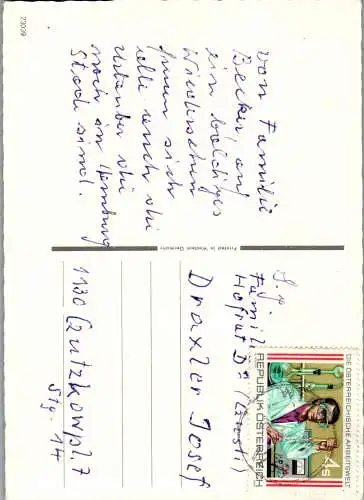 von Familie
Becker, auf
ein baldiges
Wiedersehen
freuen sich
alle auch die
Urlauber die
noch in Hamburg
Stock sind.
23009
Printed in Western Germany
S. g.
Familie
Hofrat Dr.
Draxler Josef
1130 Gutzkowpl. 7
Stg. 14
DIE ÖSTERREICHISCHE ARBEITSWELT
4 S
REPUBLIK ÖSTERREICH